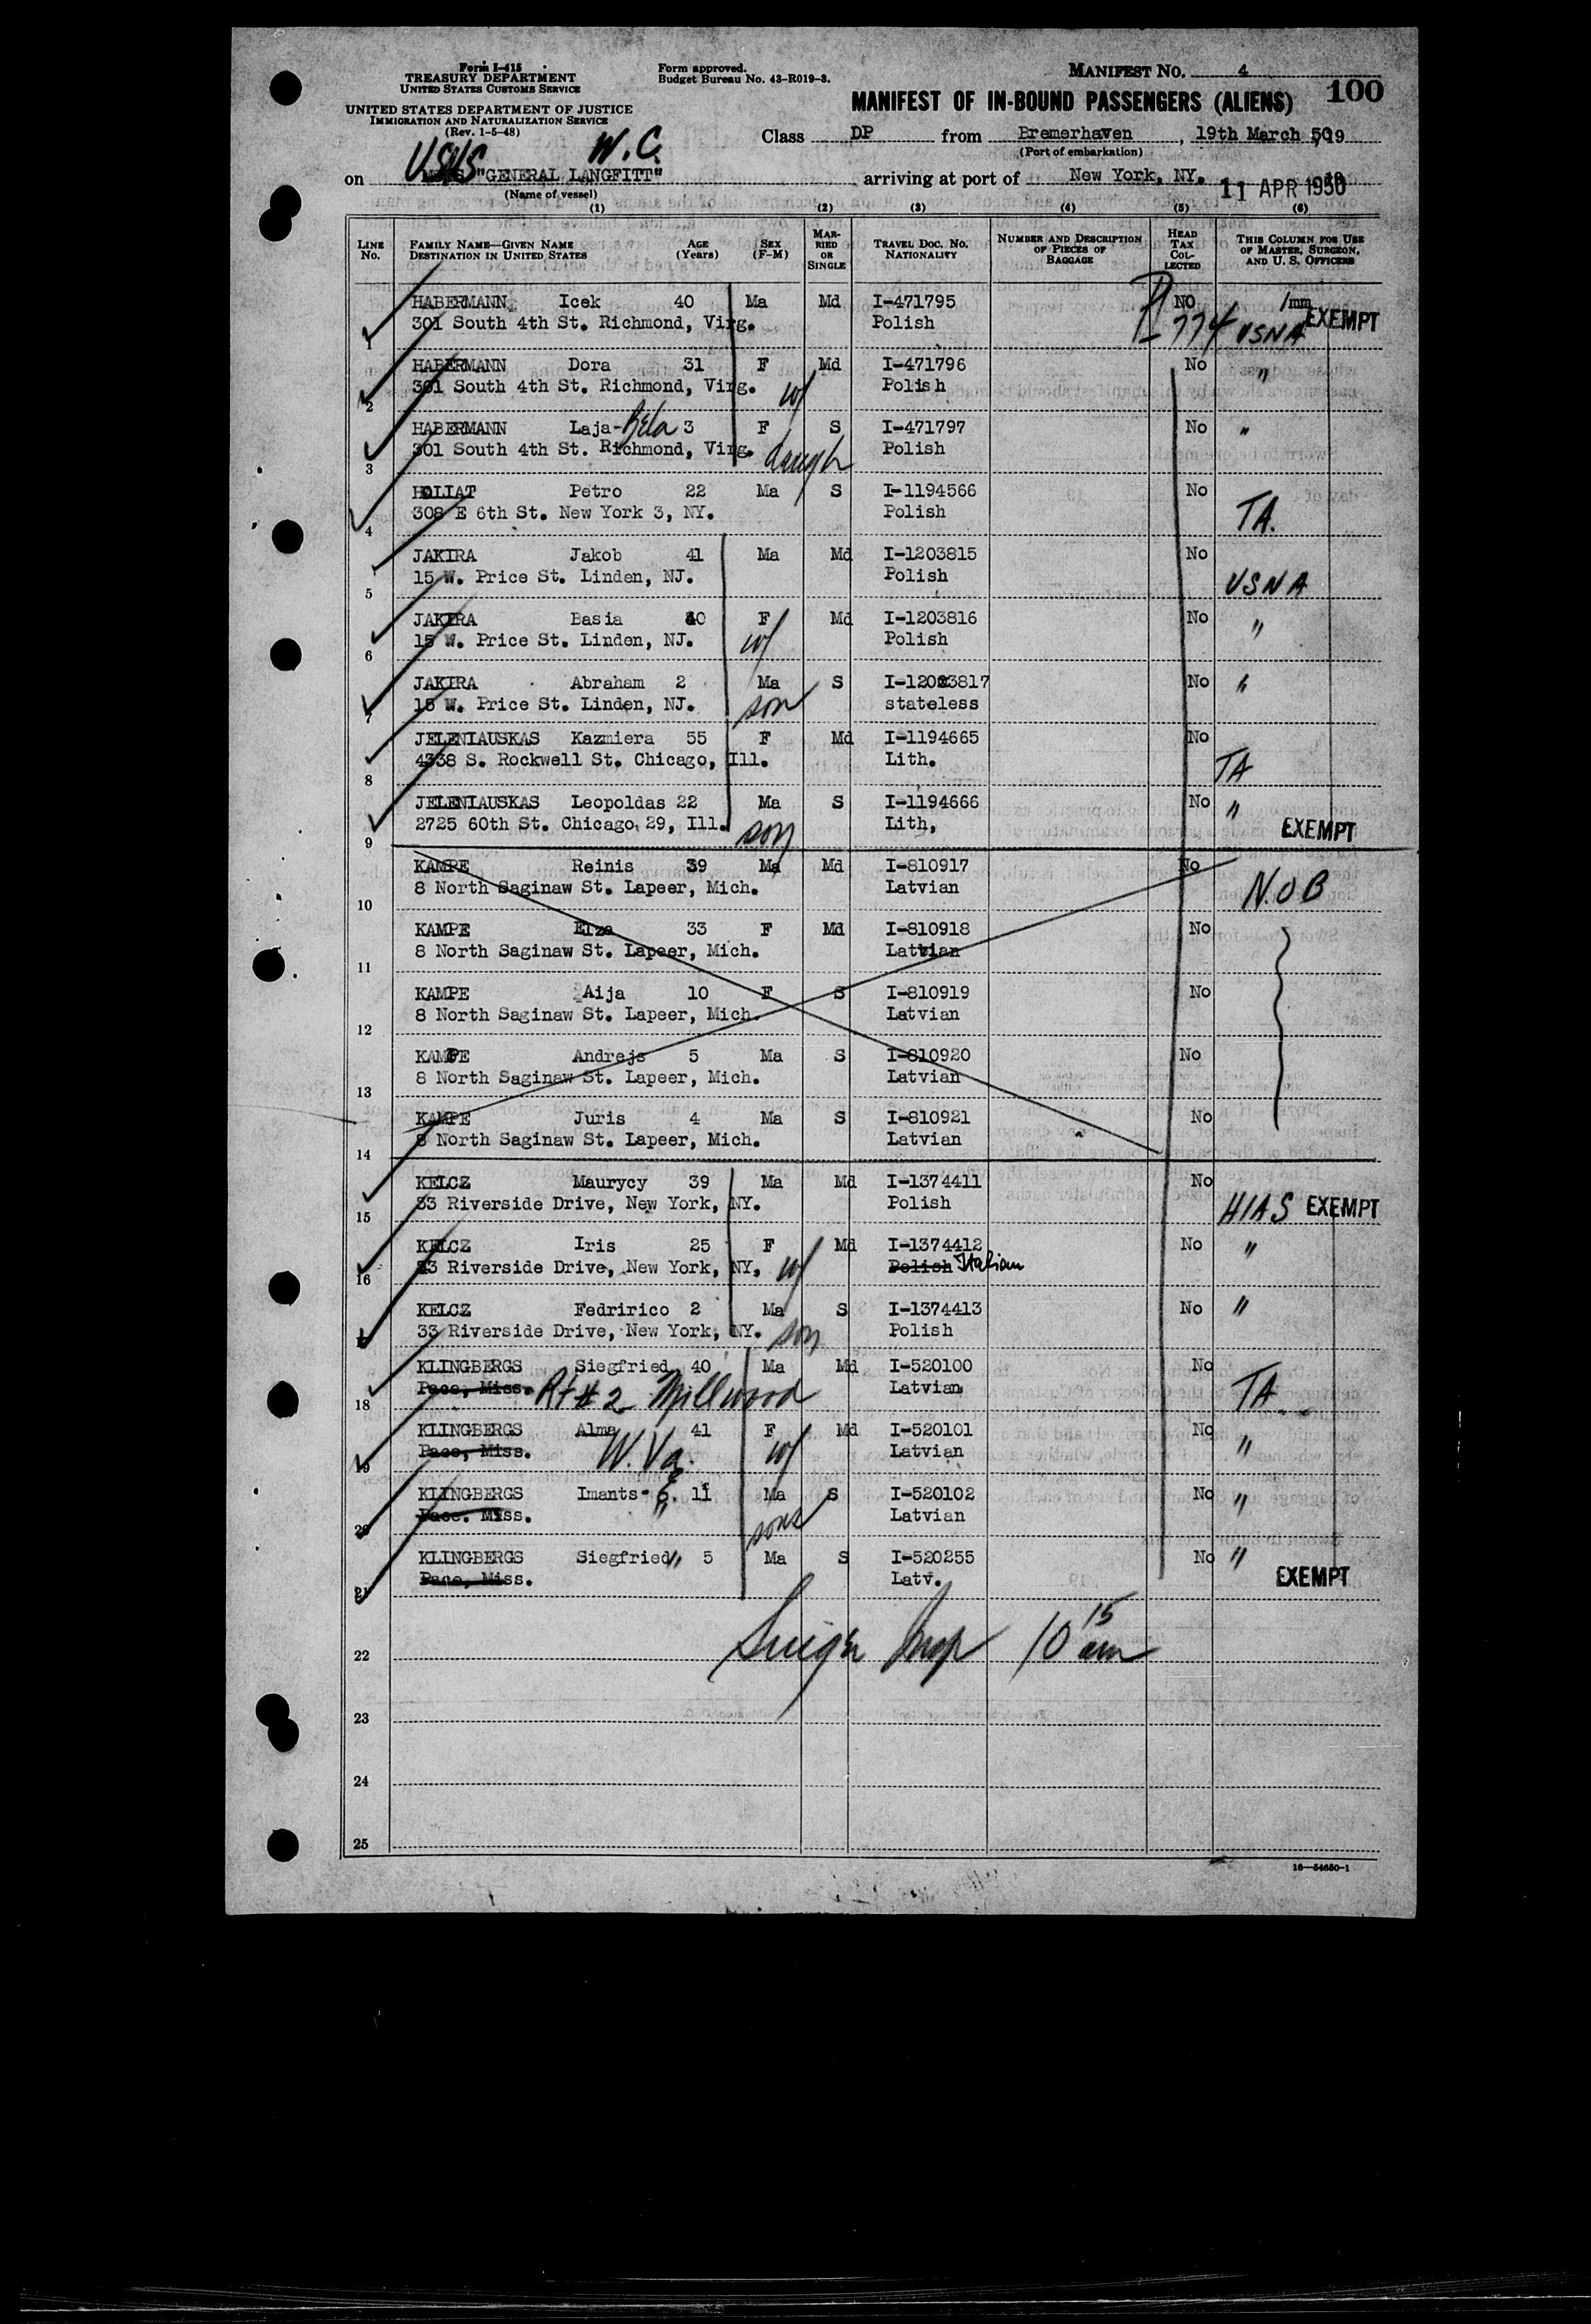 Form I-415
TREASURY DEPARTMENT
UNITED STATES CUSTOMS SERVICE
UNITED STATES DEPARTMENT OF JUSTICE
IMMIGRATION AND NATURALIZATION SERVICE
(Rev. 1-5-48)
Form approved.
Budget Bureau No. 43-R019-3.
MANIFEST No. 4
100
MANIFEST OF IN-BOUND PASSENGERS (ALIENS)
Class DP from Bremerhaven, 19th March 50 19
(Port of embarkation)
W.C.
on USNS "GENERAL LANGFITT" arriving at port of New York, NY. 11 APR 1950
(Name of vessel)
(1) (2) (3) (4) (5) (6)
LINE No. FAMILY NAME—GIVEN NAME DESTINATION IN UNITED STATES AGE (Years) SEX (F-M) MARRIED OR SINGLE TRAVEL DOC. NO. NATIONALITY NUMBER AND DESCRIPTION OF PIECES OF BAGGAGE HEAD TAX COLLECTED THIS COLUMN FOR USE OF MASTER, SURGEON, AND U. S. OFFICERS
HABERMANN Icek 40 Ma Md I-471795 NO 1mm
1 301 South 4th St. Richmond, Virg. Polish 774 USNA EXEMPT
HABERMANN Dora 31 F Md I-471796 No "
2 301 South 4th St. Richmond, Virg. w/ Polish
HABERMANN Laja-Bela 3 F S I-471797 No "
3 301 South 4th St. Richmond, Virg. daugh Polish
HOLIAT Petro 22 Ma S I-1194566 No
4 308 E 6th St. New York 3, NY. Polish TA.
JAKIRA Jakob 41 Ma Md I-1203815 No
5 15 W. Price St. Linden, NJ. Polish USNA
JAKIRA Basia 40 F Md I-1203816 No
6 15 W. Price St. Linden, NJ. w/ Polish "
JAKIRA Abraham 2 Ma S I-1203817 No "
7 15 W. Price St. Linden, NJ. son stateless
JELENIAUSKAS Kazmiera 55 F Md I-1194665 No
8 4338 S. Rockwell St. Chicago, Ill. Lith. TA
JELENIAUSKAS Leopoldas 22 Ma S I-1194666 No "
9 2725 60th St. Chicago, 29, Ill. son Lith, EXEMPT
KAMPE Reinis 39 Ma Md I-810917 No
10 8 North Saginaw St. Lapeer, Mich. Latvian N.O.B
KAMPE Elza 33 F Md I-810918 No
11 8 North Saginaw St. Lapeer, Mich. Latvian
KAMPE Aija 10 F S I-810919 No
12 8 North Saginaw St. Lapeer, Mich. Latvian
KAMPE Andrejs 5 Ma S I-810920 No
13 8 North Saginaw St. Lapeer, Mich. Latvian
KAMPE Juris 4 Ma S I-810921 No
14 8 North Saginaw St. Lapeer, Mich. Latvian
KELCZ Maurycy 39 Ma Md I-1374411 No
15 33 Riverside Drive, New York, NY. Polish HIAS EXEMPT
KELCZ Iris 25 F Md I-1374412 No "
16 33 Riverside Drive, New York, NY, w/ Polish Italian
KELCZ Fedririco 2 Ma S I-1374413 No "
17 33 Riverside Drive, New York, NY. son Polish
KLINGBERGS Siegfried 40 Ma Md I-520100 No
18 Pace, Miss. Rt # 2 Millwood Latvian TA
KLINGBERGS Alma 41 F Md I-520101 No
19 Pace, Miss. W. Va. w/ Latvian "
KLINGBERGS Imants 11 Ma S I-520102 No "
20 Pace. Miss. " sons Latvian
KLINGBERGS Siegfried " 5 Ma S I-520255 No "
21 Pace, Miss. Latv. EXEMPT
22 Insp 10 15 am
23
24
25
16—54650-1